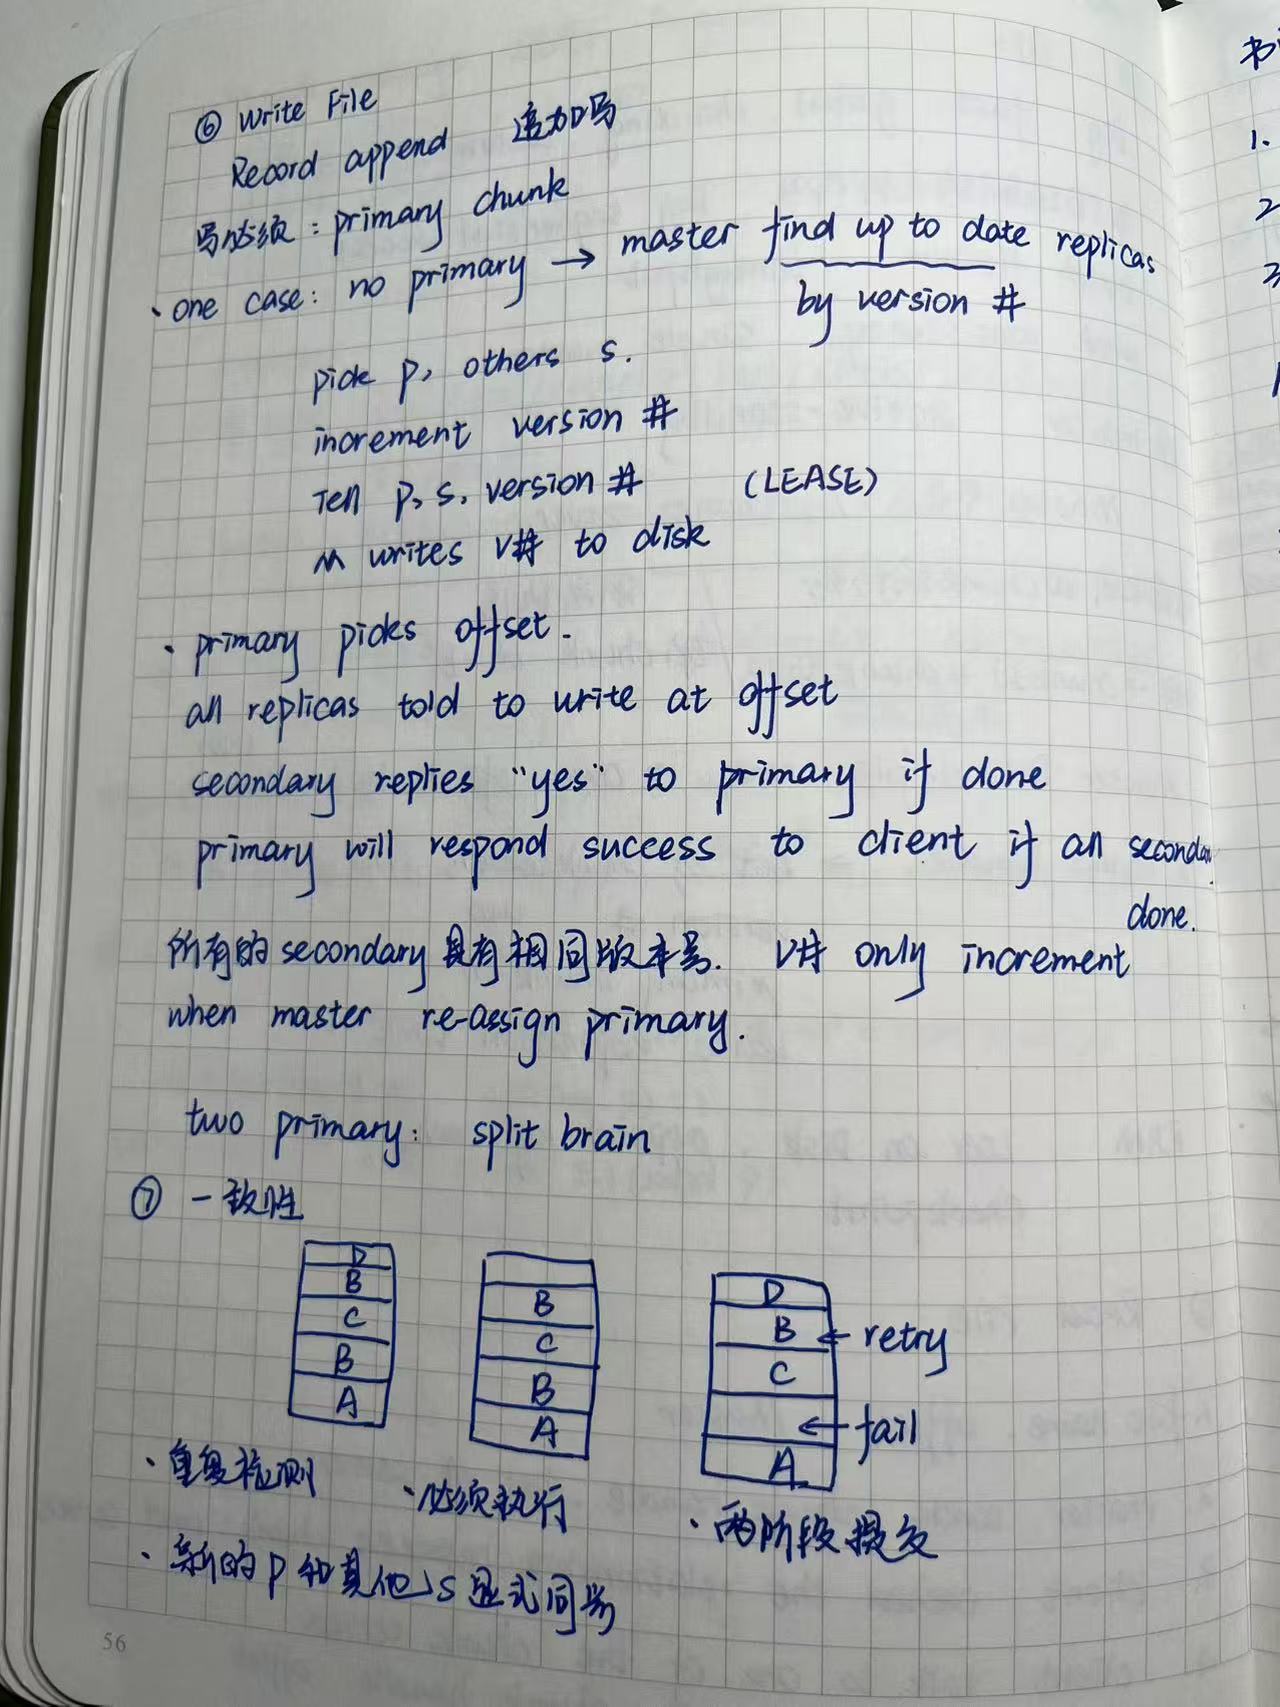 ⑥ Write File
Record append 追加写
写必须：primary chunk
· one case: no primary → master find up to date replicas
by version #
pick p, others s.
increment version #
Tell p, s, version # (LEASE)
M writes V# to disk
· primary picks offset.
all replicas told to write at offset
secondary replies "yes" to primary if done
primary will respond success to client if all secondary
done.
所有的 secondary 具有相同版本号. V# only increment
when master re-assign primary.
two primary: split brain
⑦ 一致性
D
B
C
B
A
B
C
B
A
D
B ← retry
C
← fail
A
· 重复检测
· 必须执行
· 两阶段提交
· 新的 p 和其他 s 显式同步
56
书
1.
2
3